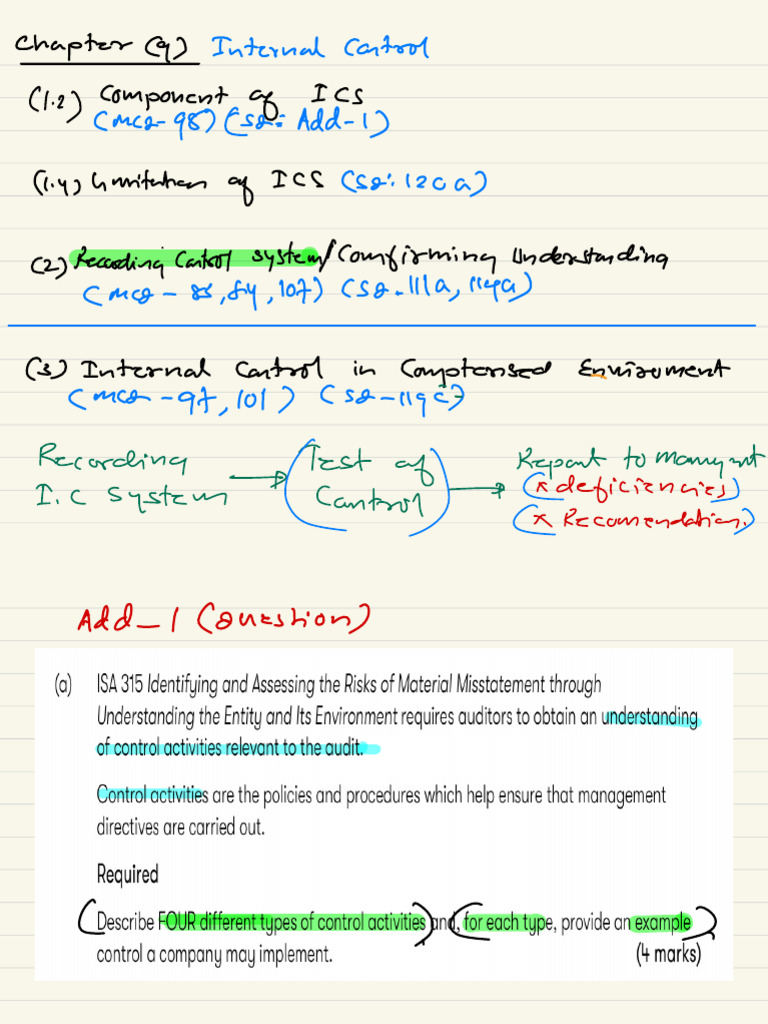 Chapter (9) Internal Control
(1.2) Component of ICS
(MCQ-98) (SQ: Add-1)
(1.4) Limitation of ICS (SQ: 120a)
(2) Recording Control System/Comfirming Understanding
(MCQ - 85, 84, 107) (SQ-111a, 114a)
(3) Internal Control in Comptorised Enviroment
(MCQ - 97, 101) (SQ-119c)
Recording Test of Report to
I.C System Control (* deficiencies)
(* Recomendation.)
Add-1 (Question)
(a) ISA 315 Identifying and Assessing the Risks of Material Misstatement through
Understanding the Entity and Its Environment requires auditors to obtain an understanding
of control activities relevant to the audit.
Control activities are the policies and procedures which help ensure that management
directives are carried out.
Required
(Describe FOUR different types of control activities) and, (for each type, provide an example)
control a company may implement. (4 marks)